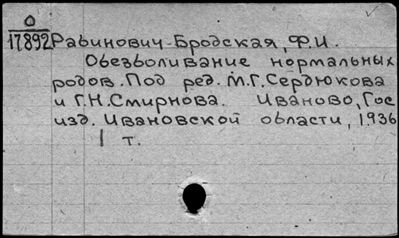 О
17892 Рабинович-Бродская, Ф.И.
Обезболивание нормальных
родов. Под ред. М.Г. Сердюкова
и Г.Н. Смирнова. Иваново, Гос
изд. Ивановской области, 1936
1 т.